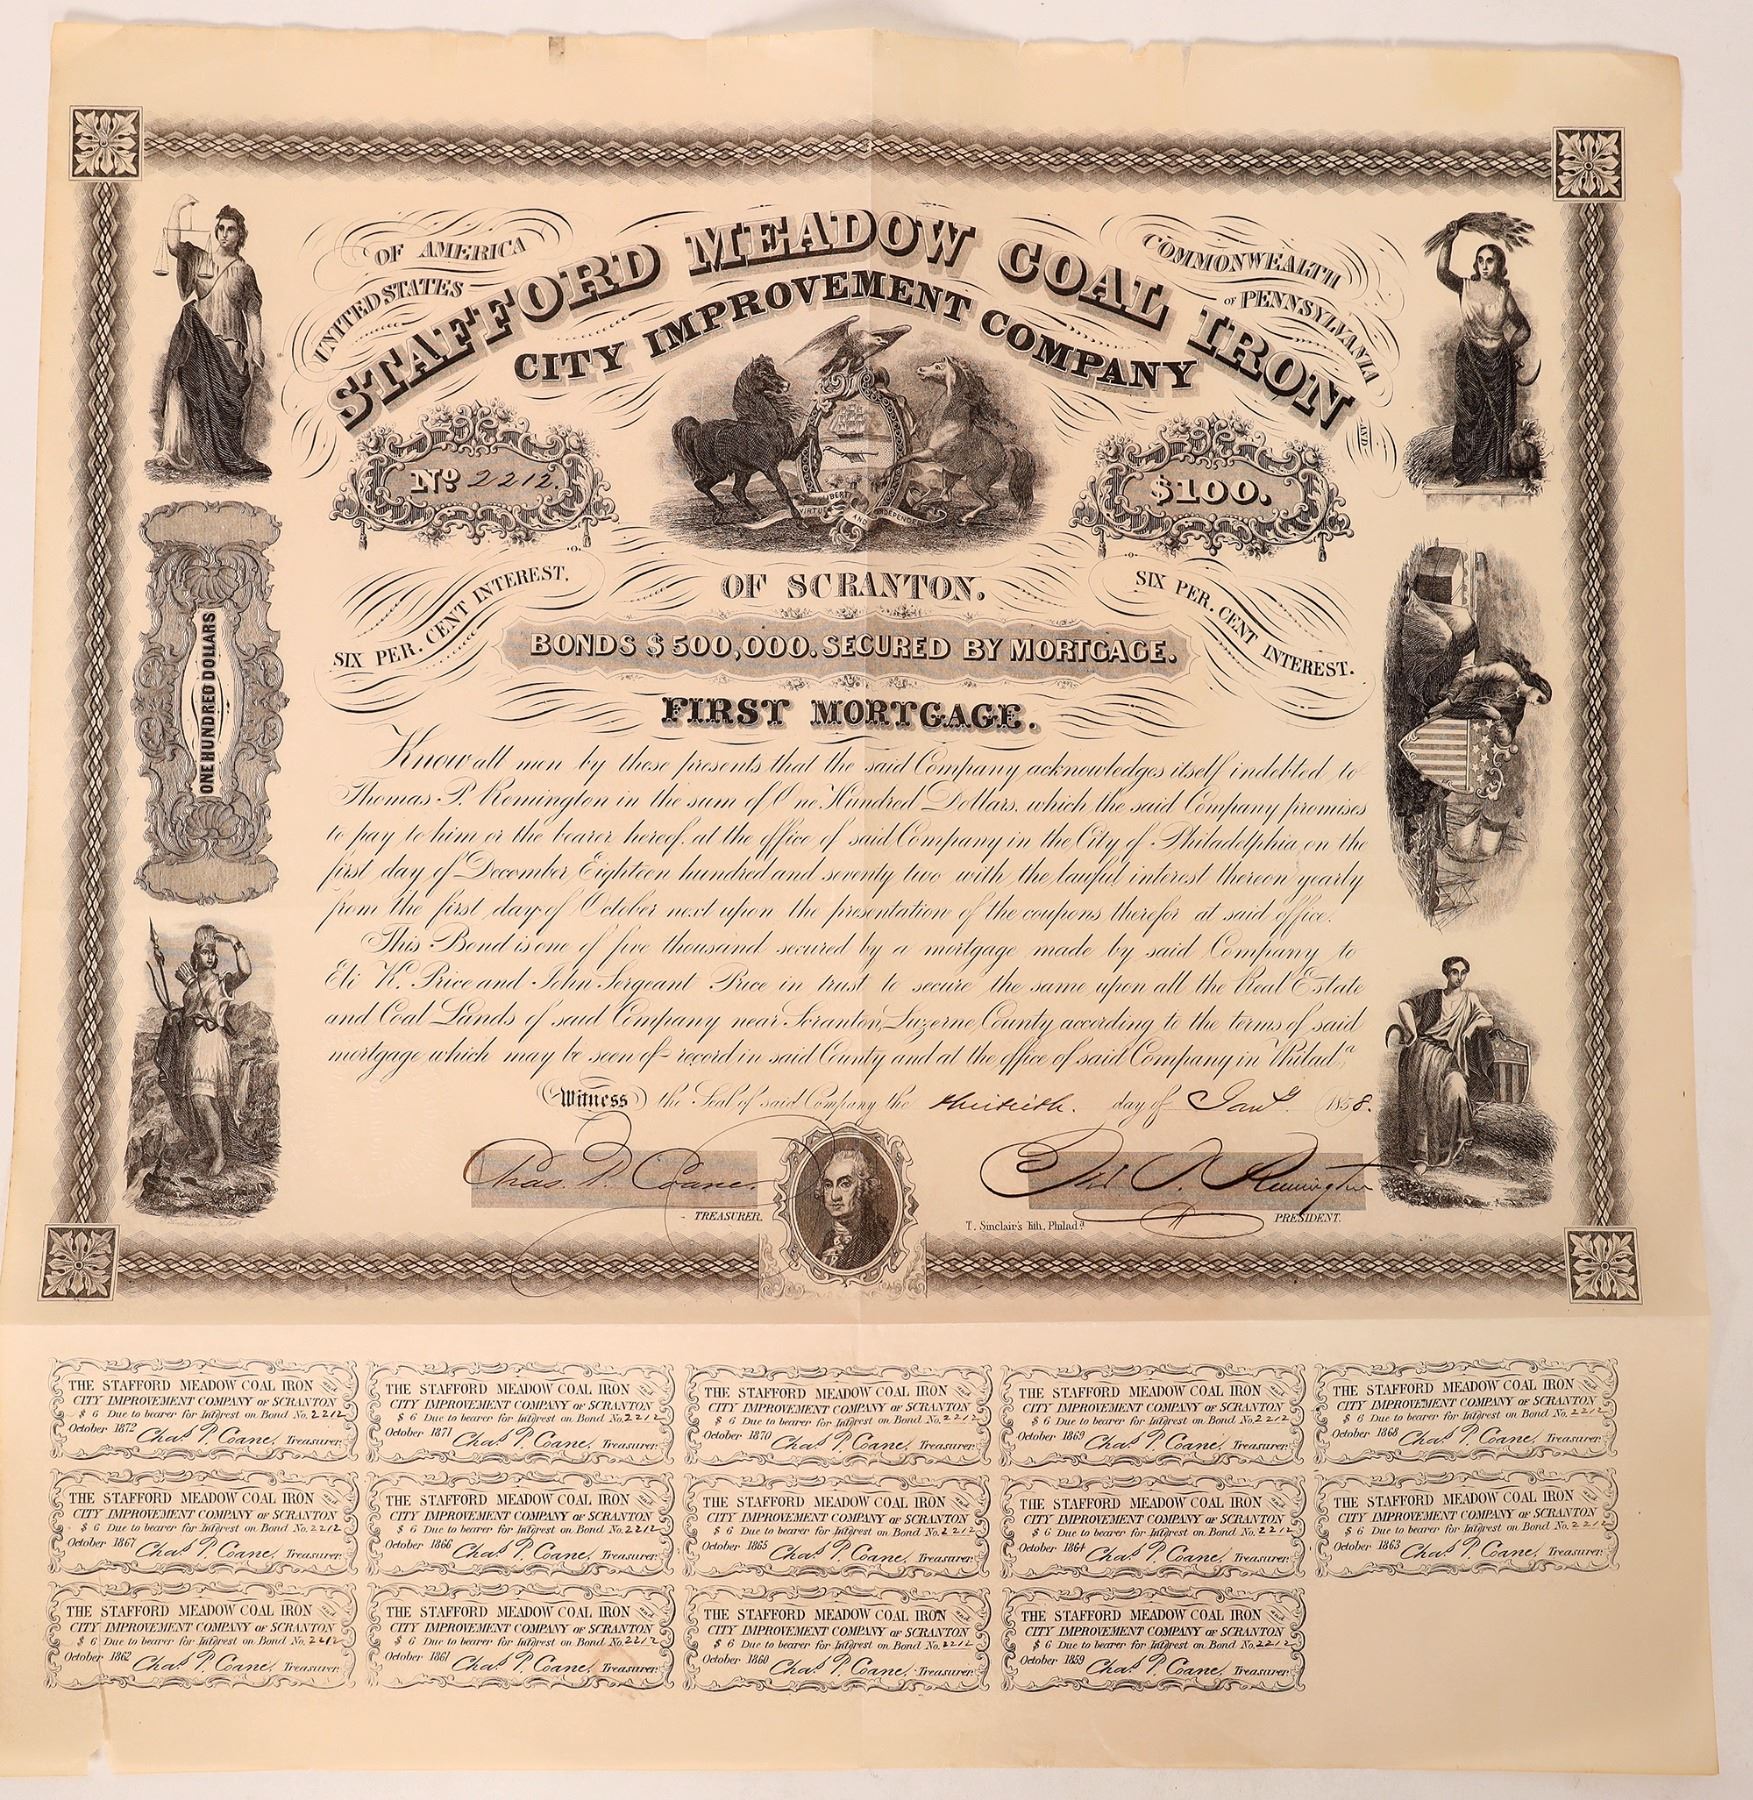 UNITED STATES OF AMERICA
COMMONWEALTH OF PENNSYLVANIA
AND
STAFFORD MEADOW COAL IRON
CITY IMPROVEMENT COMPANY
No 2212.
$100.
VIRTUE LIBERTY AND INDEPENDENCE
OF SCRANTON.
SIX PER. CENT INTEREST.
SIX PER. CENT INTEREST.
BONDS $500,000. SECURED BY MORTGAGE.
FIRST MORTGAGE.
ONE HUNDRED DOLLARS
Know all men by these presents that the said Company acknowledges itself indebted to
Thomas P. Remington in the sum of One Hundred Dollars, which the said Company promises
to pay to him or the bearer hereof, at the office of said Company in the City of Philadelphia, on the
first day of December Eighteen hundred and seventy two with the lawful interest thereon yearly
from the first day of October next upon the presentation of the coupons therefor at said office.
This Bond is one of five thousand secured by a mortgage made by said Company to
Eli K. Price and John Sergeant Price in trust to secure the same upon all the Real Estate
and Coal Lands of said Company near Scranton, Luzerne County according to the terms of said
mortgage which may be seen of record in said County and at the office of said Company in Philada,
Witness the Seal of said Company the thirtieth. day of Jany 1858.
Chas. P. Coane.
TREASURER.
Thos. P. Remington
PRESIDENT.
T. Sinclair's lith, Philada
THE STAFFORD MEADOW COAL IRON and
CITY IMPROVEMENT COMPANY OF SCRANTON
$ 6 Due to bearer for Interest on Bond No. 2212
October 1872 Chas P. Coane, Treasurer.
THE STAFFORD MEADOW COAL IRON and
CITY IMPROVEMENT COMPANY OF SCRANTON
$ 6 Due to bearer for Interest on Bond No. 2212
October 1871 Chas P. Coane, Treasurer.
THE STAFFORD MEADOW COAL IRON and
CITY IMPROVEMENT COMPANY OF SCRANTON
$ 6 Due to bearer for Interest on Bond No. 2212
October 1870 Chas P. Coane, Treasurer.
THE STAFFORD MEADOW COAL IRON and
CITY IMPROVEMENT COMPANY OF SCRANTON
$ 6 Due to bearer for Interest on Bond No. 2212
October 1869 Chas P. Coane, Treasurer.
THE STAFFORD MEADOW COAL IRON and
CITY IMPROVEMENT COMPANY OF SCRANTON
$ 6 Due to bearer for Interest on Bond No. 2212
October 1868 Chas P. Coane, Treasurer.
THE STAFFORD MEADOW COAL IRON and
CITY IMPROVEMENT COMPANY OF SCRANTON
$ 6 Due to bearer for Interest on Bond No. 2212
October 1867 Chas P. Coane, Treasurer.
THE STAFFORD MEADOW COAL IRON and
CITY IMPROVEMENT COMPANY OF SCRANTON
$ 6 Due to bearer for Interest on Bond No. 2212
October 1866 Chas P. Coane, Treasurer.
THE STAFFORD MEADOW COAL IRON and
CITY IMPROVEMENT COMPANY OF SCRANTON
$ 6 Due to bearer for Interest on Bond No. 2212
October 1865 Chas P. Coane, Treasurer.
THE STAFFORD MEADOW COAL IRON and
CITY IMPROVEMENT COMPANY OF SCRANTON
$ 6 Due to bearer for Interest on Bond No. 2212
October 1864 Chas P. Coane, Treasurer.
THE STAFFORD MEADOW COAL IRON and
CITY IMPROVEMENT COMPANY OF SCRANTON
$ 6 Due to bearer for Interest on Bond No. 2212
October 1863 Chas P. Coane, Treasurer.
THE STAFFORD MEADOW COAL IRON and
CITY IMPROVEMENT COMPANY OF SCRANTON
$ 6 Due to bearer for Interest on Bond No. 2212
October 1862 Chas P. Coane, Treasurer.
THE STAFFORD MEADOW COAL IRON and
CITY IMPROVEMENT COMPANY OF SCRANTON
$ 6 Due to bearer for Interest on Bond No. 2212
October 1861 Chas P. Coane, Treasurer.
THE STAFFORD MEADOW COAL IRON and
CITY IMPROVEMENT COMPANY OF SCRANTON
$ 6 Due to bearer for Interest on Bond No. 2212
October 1860 Chas P. Coane, Treasurer.
THE STAFFORD MEADOW COAL IRON and
CITY IMPROVEMENT COMPANY OF SCRANTON
$ 6 Due to bearer for Interest on Bond No. 2212
October 1859 Chas P. Coane, Treasurer.